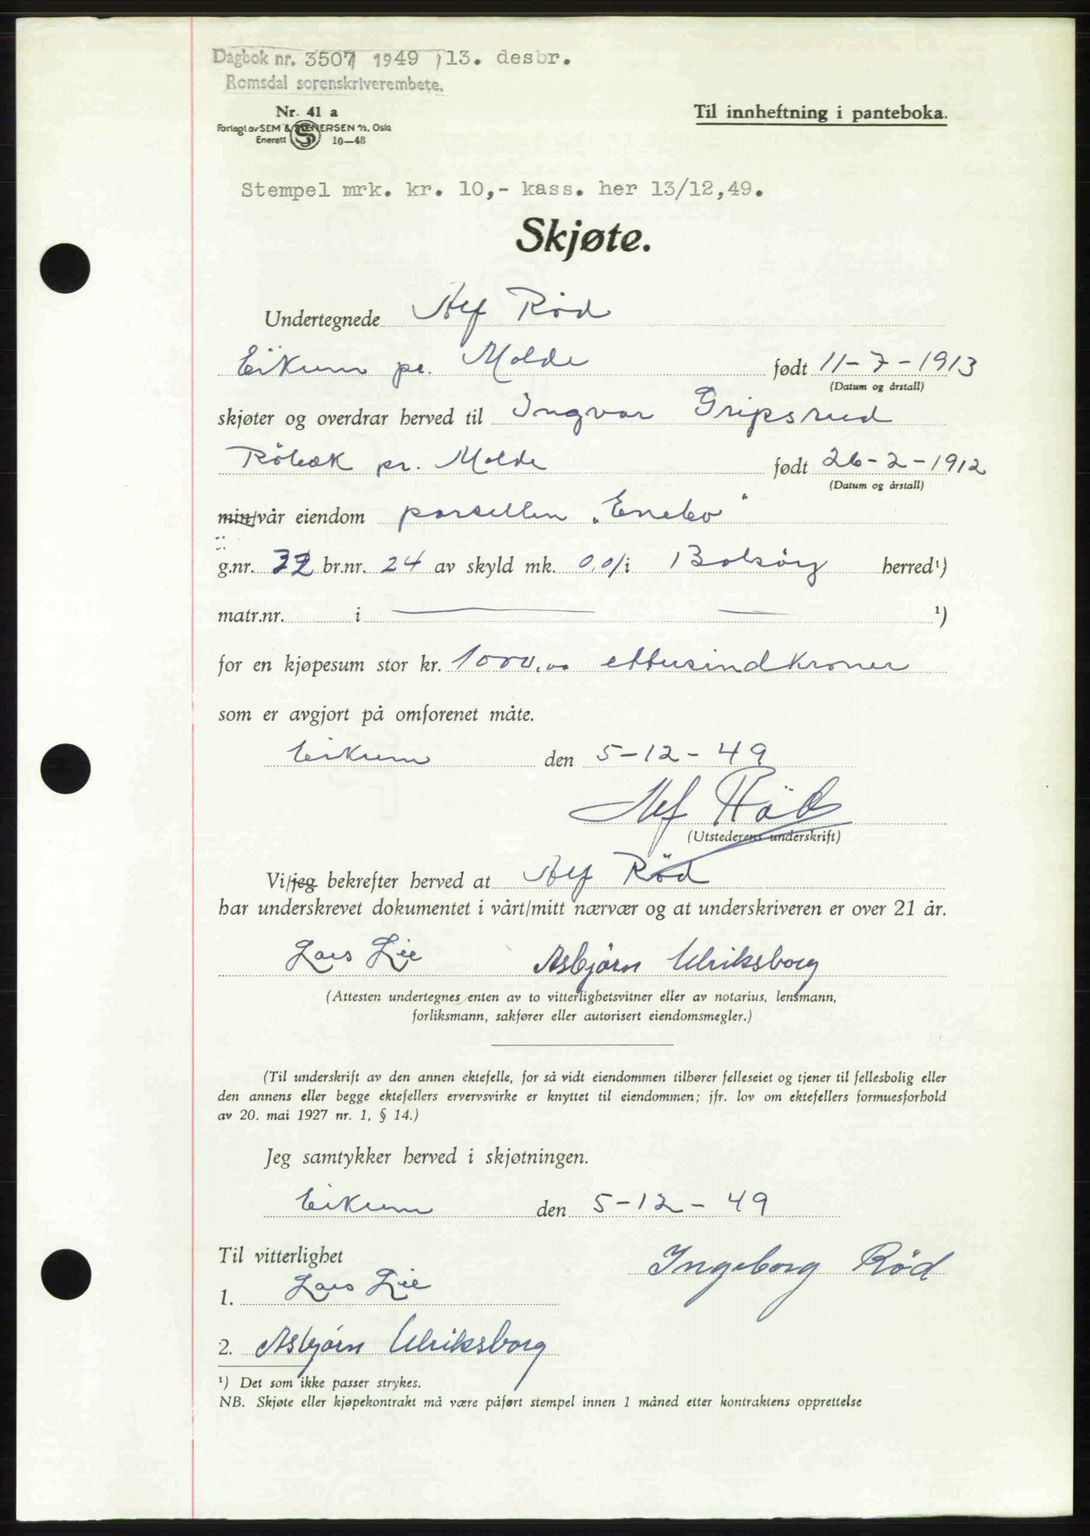 Dagbok nr. 3507 1949 /13. desbr.
Romsdal sorenskriverembete.
Nr. 41 a
Forlagt av SEM & STENERSEN A/S, Oslo
Enerett SS 10—48
Til innheftning i panteboka.
Stempel mrk. kr. 10,- kass. her 13/12,49.
Skjøte.
Undertegnede Alf Rød
Eikrem pr. Molde født 11-7-1913
(Datum og årstall)
skjøter og overdrar herved til Ingvar Gripsrud
Röbæk pr. Molde født 26-2-1912
(Datum og årstall)
min/vår eiendom parsellen „Enebo"
g.nr. 32 br.nr. 24 av skyld mk. 0,01 i Bolsøy herred¹)
matr.nr. i ¹)
for en kjøpesum stor kr. 1000.00 ettusindkroner
som er avgjort på omforenet måte.
Eikrem den 5-12-49
Alf Röd
(Utstederens underskrift)
Vi/jeg bekrefter herved at Alf Rød
har underskrevet dokumentet i vårt/mitt nærvær og at underskriveren er over 21 år.
Lars Lie Asbjørn Ulriksborg
(Attesten undertegnes enten av to vitterlighetsvitner eller av notarius, lensmann,
forliksmann, sakfører eller autorisert eiendomsmegler.)
(Til underskrift av den annen ektefelle, for så vidt eiendommen tilhører felleseiet og tjener til fellesbolig eller
den annens eller begge ektefellers ervervsvirke er knyttet til eiendommen; jfr. lov om ektefellers formuesforhold
av 20. mai 1927 nr. 1, § 14.)
Jeg samtykker herved i skjøtningen.
Eikrem den 5-12-49
Til vitterlighet
Ingeborg Rød
1. Lars Lie
2. Asbjørn Ulriksborg
¹) Det som ikke passer strykes.
NB. Skjøte eller kjøpekontrakt må være påført stempel innen 1 måned etter kontraktens opprettelse